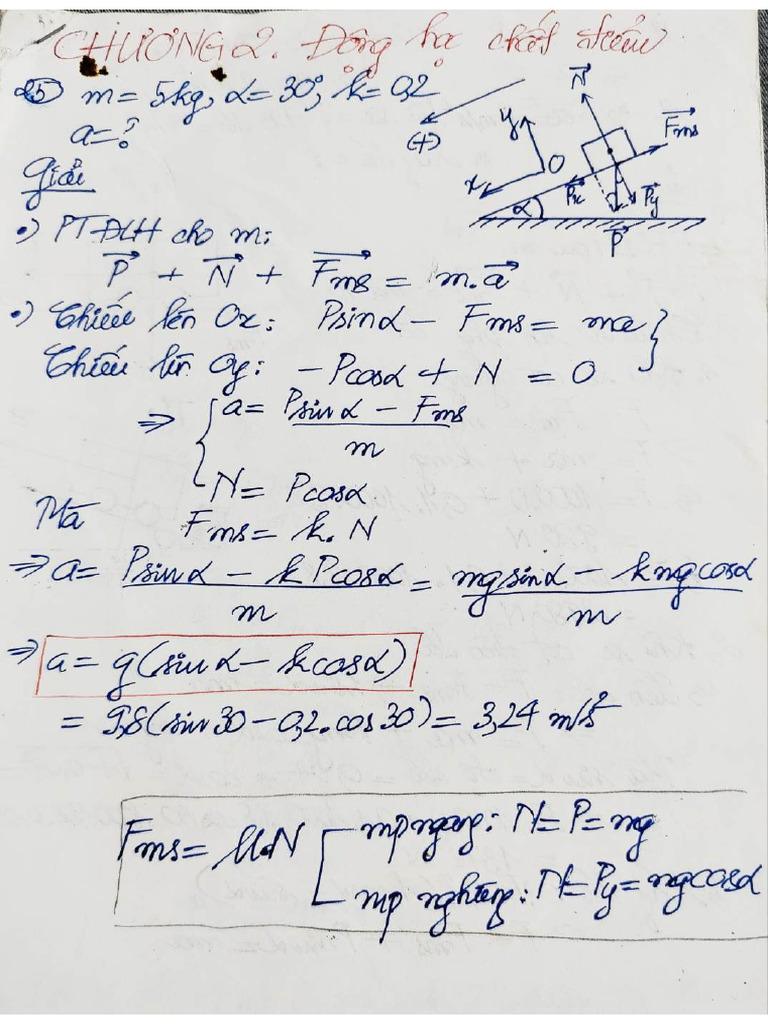 CHƯƠNG 2. Động học chất điểm
25) m = 5kg, α = 30°, k = 0,2
a = ?
Giải
(+)
y
O
x
N
Fms
Px
Py
P
α
•) PTĐLH cho m:
P + N + Fms = m.a
•) Chiếu lên Ox: Psinα - Fms = ma
Chiếu lên Oy: -Pcosα + N = 0
=> { a = (Psinα - Fms) / m
N = Pcosα
Mà Fms = k.N
=> a = (Psinα - kPcosα) / m = (mgsinα - kmgcosα) / m
=> a = g(sinα - kcosα)
= 9,8(sin30 - 0,2.cos30) = 3,24 m/s²
Fms = μ.N
mp ngang: N = P = mg
mp nghiêng: N = Py = mgcosα